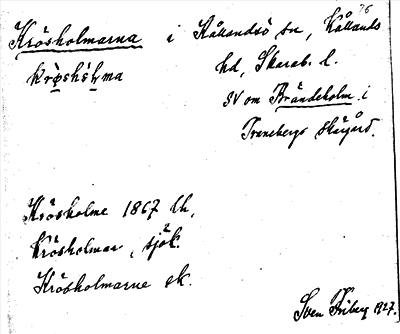 76
Krösholmarna i Kållandsö sn, Kållands
hd, Skarab. l.
SV om Brändeholm i
Tranebergs skärgård.
Krösholme 1867 lh,
Krösholmar, sjök.
Krösholmarne ek.
Sven Friberg 1927.